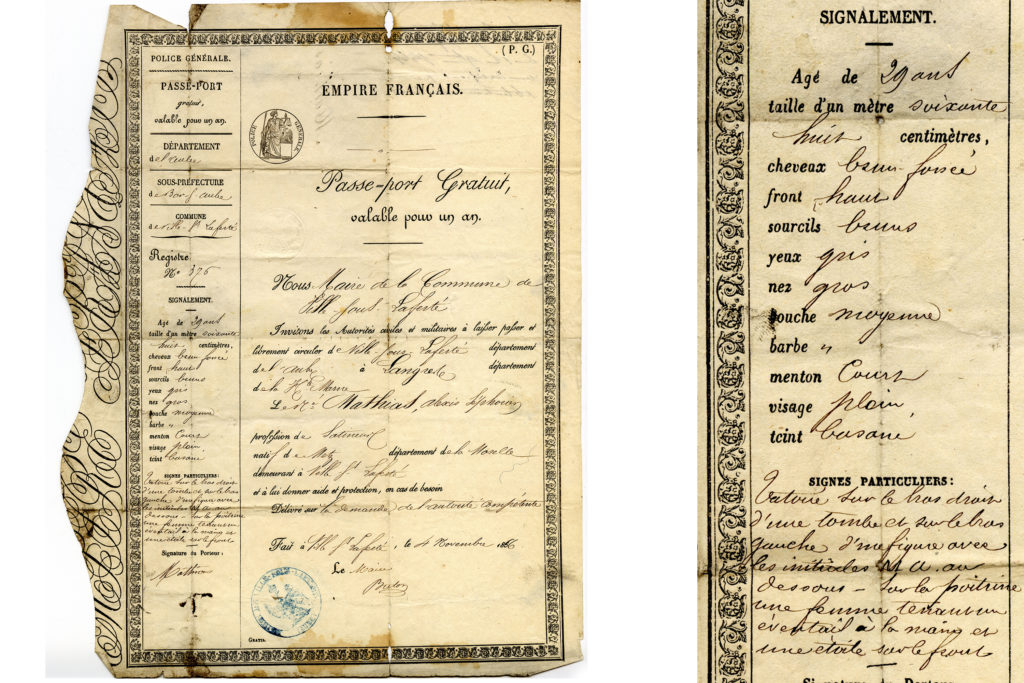 (P. G.)
POLICE GÉNÉRALE.
PASSE-PORT
gratuit,
valable pour un an.
DÉPARTEMENT
de l'aube
SOUS-PRÉFECTURE
de Bar s/ aube
COMMUNE
de Ville s/s Laferté
Registre
N° 376
SIGNALEMENT.
Agé de 29 ans
taille d'un mètre soixante
huit centimètres,
cheveux brun foncé
front haut
sourcils bruns
yeux gris
nez gros
bouche moyenne
barbe "
menton Court
visage plein
teint basané
SIGNES PARTICULIERS:
tatoué sur le bras droit
d'une tombe et sur le bras
gauche d'une figure avec
les initiales M A. au
dessous - sur la poitrine
une femme tenant un
éventail à la main et
une étoile sur le front
Signature du Porteur:
Mathias
EMPIRE FRANÇAIS.
POLICE GÉNÉRALE
Passe-port Gratuit,
valable pour un an.
Nous Maire de la Commune de
Ville sous Laferté
Invitons les Autorités civiles et militaires à laisser passer et
librement circuler de Ville sous Laferté département
de l'aube à Langres département
de la Hte Marne
Le Sr Mathias, alexis
profession de
natif de Metz département de la Moselle
demeurant à Ville s/s Laferté
et à lui donner aide et protection, en cas de besoin
Délivré sur la demande de l'autorité compétente
Fait à Ville s/s Laferté, le 4 Novembre 1866
Le Maire
GRATIS.
SIGNALEMENT.
Agé de 29 ans
taille d'un mètre soixante
huit centimètres,
cheveux brun foncé
front haut
sourcils bruns
yeux gris
nez gros
bouche moyenne
barbe "
menton Court
visage plein
teint basané
SIGNES PARTICULIERS:
tatoué sur le bras droit
d'une tombe et sur le bras
gauche d'une figure avec
les initiales M A. au
dessous - sur la poitrine
une femme tenant un
éventail à la main et
une étoile sur le front
Signature du Porteur